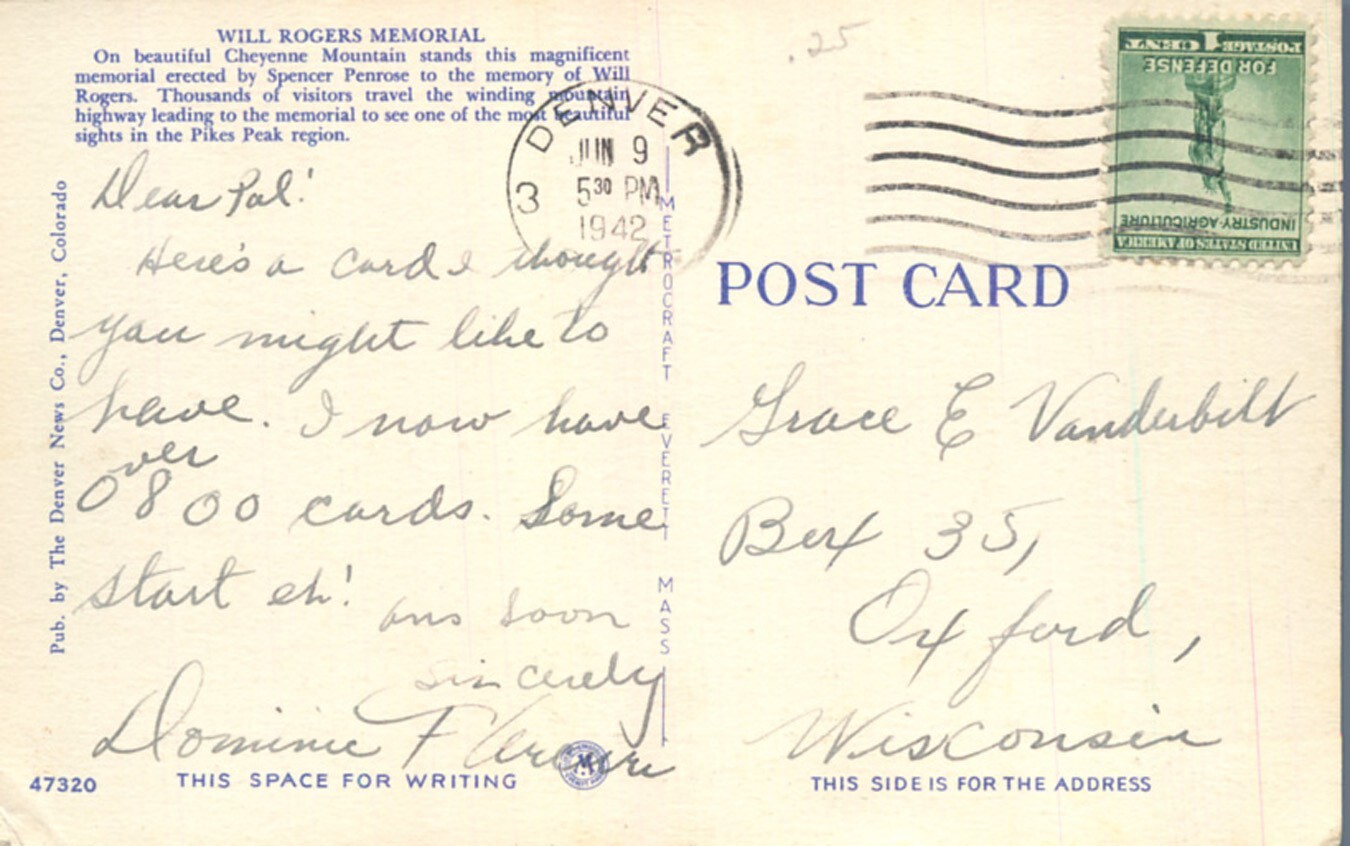 WILL ROGERS MEMORIAL
On beautiful Cheyenne Mountain stands this magnificent
memorial erected by Spencer Penrose to the memory of Will
Rogers. Thousands of visitors travel the winding mountain
highway leading to the memorial to see one of the most beautiful
sights in the Pikes Peak region.
Dear Pal!
Here's a card I thought
you might like to
have. I now have
over
800 cards. Some
start eh!
ans soon
Sincerely
Dominic F
47320
THIS SPACE FOR WRITING
Pub. by The Denver News Co., Denver, Colorado
METROCRAFT EVERETT MASS
DENVER
3
JUN 9
5 30 PM
1942
.25
UNITED STATES OF AMERICA
INDUSTRY-AGRICULTURE
FOR DEFENSE
POSTAGE 1 CENT
POST CARD
Grace E Vanderbilt
Box 35,
Oxford,
Wisconsin
THIS SIDE IS FOR THE ADDRESS